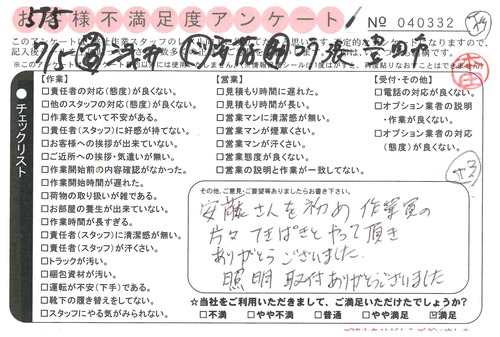 お客様不満足度アンケート
No 040332
チェックリスト
【作業】
□責任者の対応(態度)が良くない。
□他のスタッフの対応(態度)が良くない。
□作業を見ていて不安がある。
□責任者(スタッフ)に好感が持てない。
□お客様への挨拶が出来ていない。
□ご近所への挨拶・気遣いが無い。
□作業開始前の内容確認がなかった。
□作業開始時間が遅れた。
□荷物の取り扱いが雑である。
□お部屋の養生が出来ていない。
□作業時間が長すぎる。
□責任者(スタッフ)に清潔感が無い。
□責任者(スタッフ)が汗くさい。
□トラックが汚い。
□梱包資材が汚い。
□運転が不安(下手)である。
□靴下の履き替えをしてない。
□スタッフにやる気がみられない。
【営業】
□見積もり時間に遅れた。
□見積もり時間が長い。
□営業マンに清潔感が無い。
□営業マンが煙草くさい。
□営業マンが汗くさい。
□営業態度が良くない。
□営業の説明と作業が一致してない。
【受付・その他】
□電話の対応が良くない。
□オプション業者の説明
・作業が良くない。
□オプション業者の対応
(態度)が良くない。
その他、ご意見・ご要望等ありましたらお書き下さい。
安藤さんを初め 作業員の
方々 てきぱきと やって頂き
ありがとうございました。
照明 取付ありがとうございました
☆当社をご利用いただきまして、ご満足いただけたでしょうか?
□不満 □やや不満 □普通 □やや満足 ☑満足